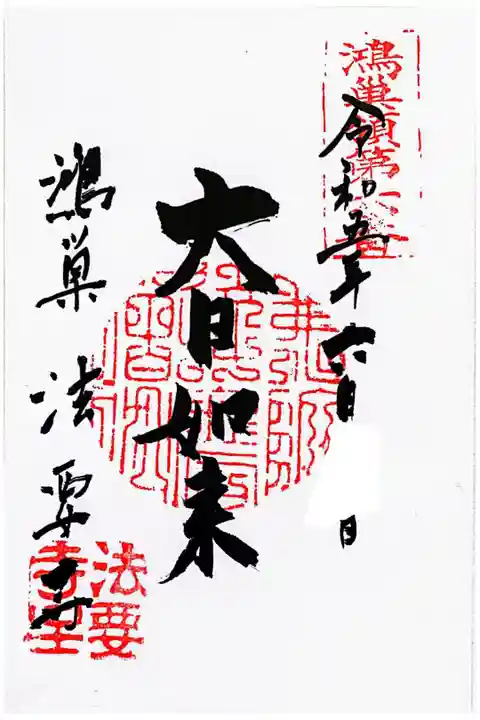 鴻巣領第六番
令和五年六月 日
大日如来
鴻巣 法要寺
法要
寺里